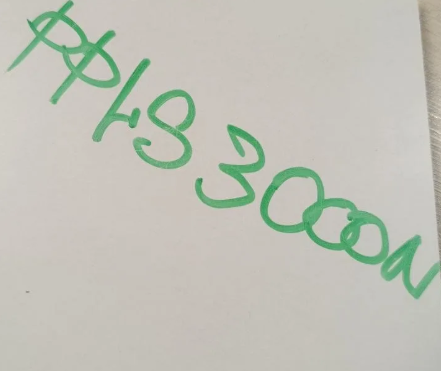 PPLS 3000N